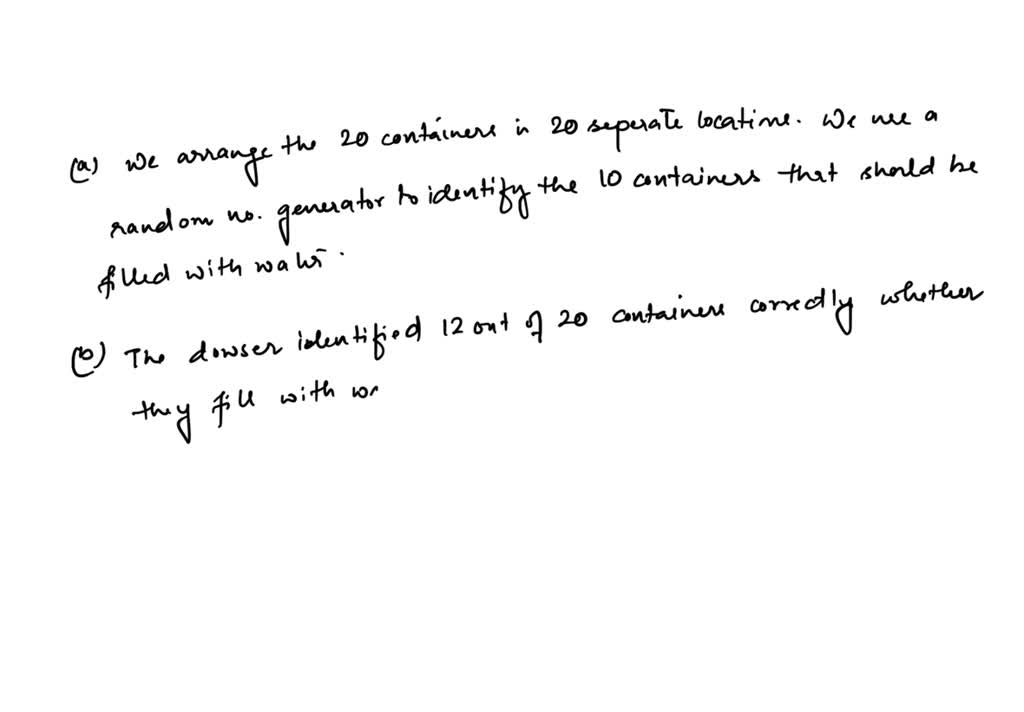 (a) We arrange the 20 containers in 20 seperate locations. We use a
random no. generator to identify the 10 containers that should be
filled with water.
(b) The dowser identified 12 out of 20 containers correctly whether
they fill with wa